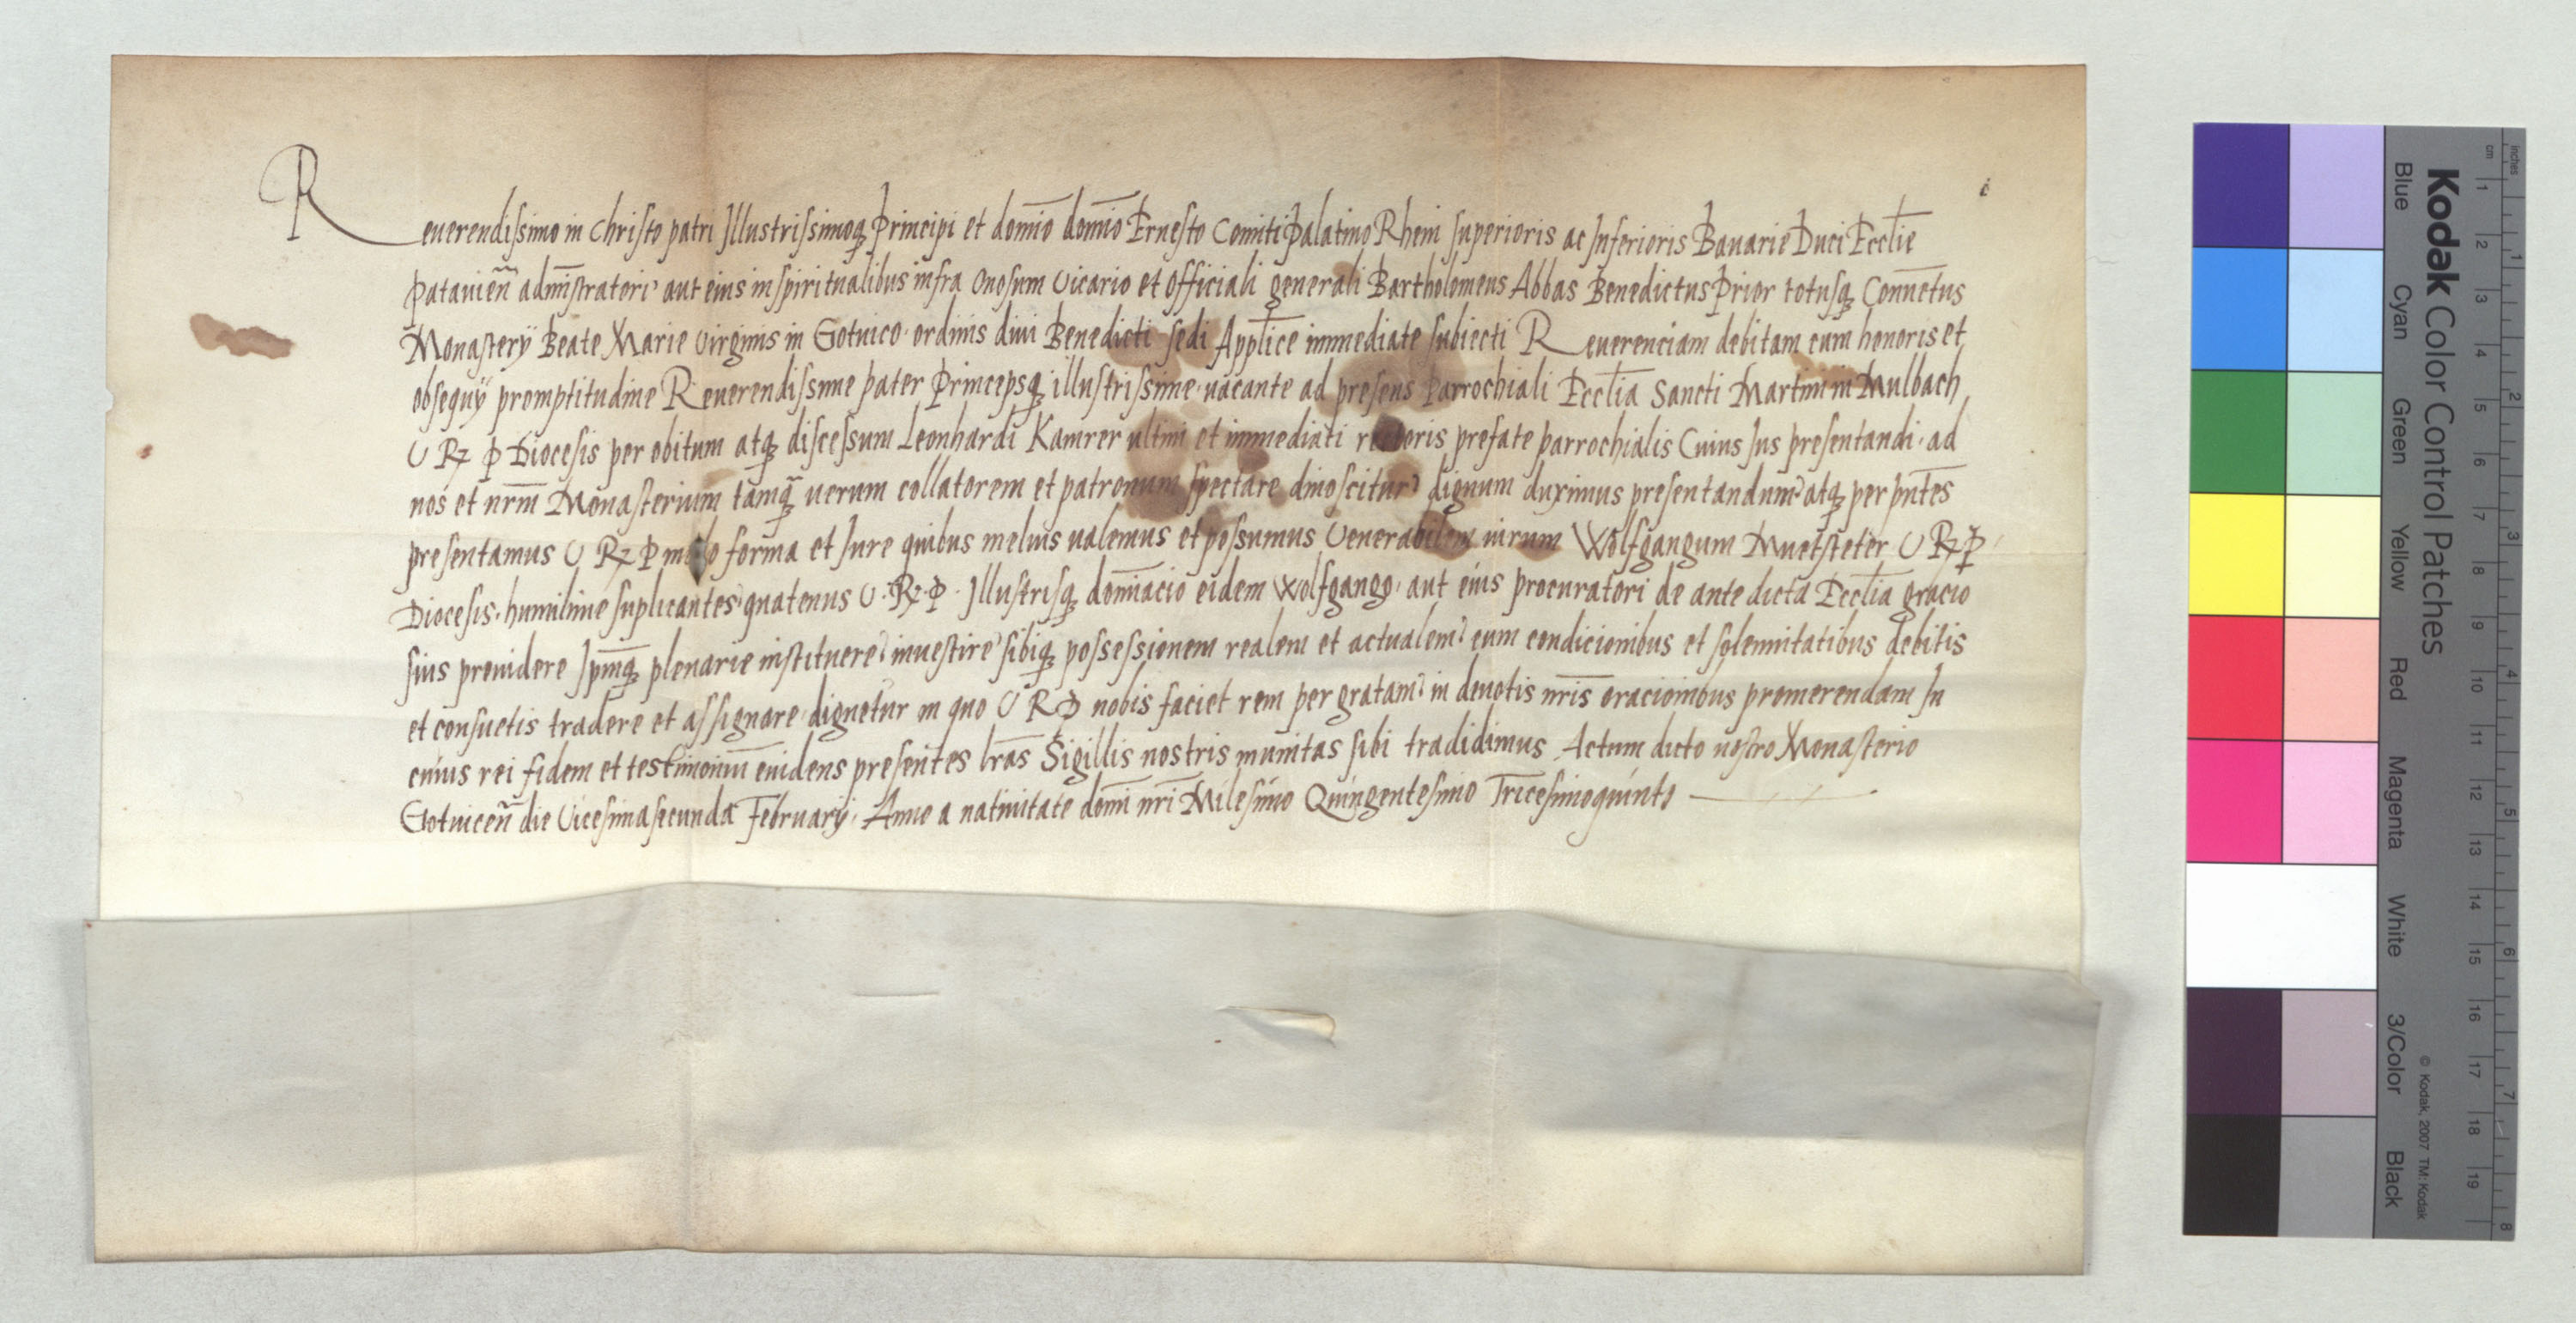 Reuerendissimo in Christo patri Jllustrissimoq̃ Principi et domĩo domĩo Ernesto Comiti Palatino Rheni superioris ac Jnferioris Bauarie Duci Eccłie
Patauieñ adm̃istratori aut eius in spiritualibus infra Onosum Vicario et officiali generali Bartholomeus Abbas Benedictus Prior totusq̃ Conuẽtus
Monasterÿ Beate Marie Virginis in Gotuico ordinis diui Benedicti sedi Appłice immediate subiecti Reuerenciam debitam cum honoris et
obsequÿ promptitudine Reuerendissime pater Princepsq̃ illustrissime uacante ad presens parrochiali Eccłia Sancti Martini in Mulbach
V R P Diocesis per obitum atq̃ discessum Leonhardi Kamrer ultimi et immediati rectoris prefate parrochialis Cuius Jus presentandi ad
nos et nr̃m Monasterium tamq̃ uerum collatorem et patronum spectare dinoscitur dignum duximus presentandum atq̃ per pñtes
presentamus V R P modo forma et Jure quibus melius ualemus et possumus Venerabilem uirum Wolfgangum Muetsteter V R P
Diocesis humilime suplicantes quatenus V R P Jllustrisq̃ domĩacio eidem Wolfgango aut eius procuratori de ante dicta Eccłia gracio
sius prouidere Jpm̃q̃ plenarie instituere inuestire sibiq̃ possessionem realem et actualem cum condicionibus et solennitatibus debitis
et consuetis tradere et assignare dignetur in quo V R P nobis faciet rem per gratam in deuotis nr̃is oracionibus promerendam Jn
cuius rei fidem et testimoniũ euidens presentes lr̃as Sigillis nostris munitas sibi tradidimus Actum dicto nostro Monasterio
Gotuiceñ die Vicesimasecunda Februarÿ Anno a natiuitate domĩ nr̃i Milesimo Quingentesimo Tricesimoquinto
Kodak Color Control Patches
Blue Cyan Green Yellow Red Magenta White 3/Color Black
© Kodak, 2007 TM: Kodak
cm 1 2 3 4 5 6 7 8 9 10 11 12 13 14 15 16 17 18 19
inches 1 2 3 4 5 6 7 8